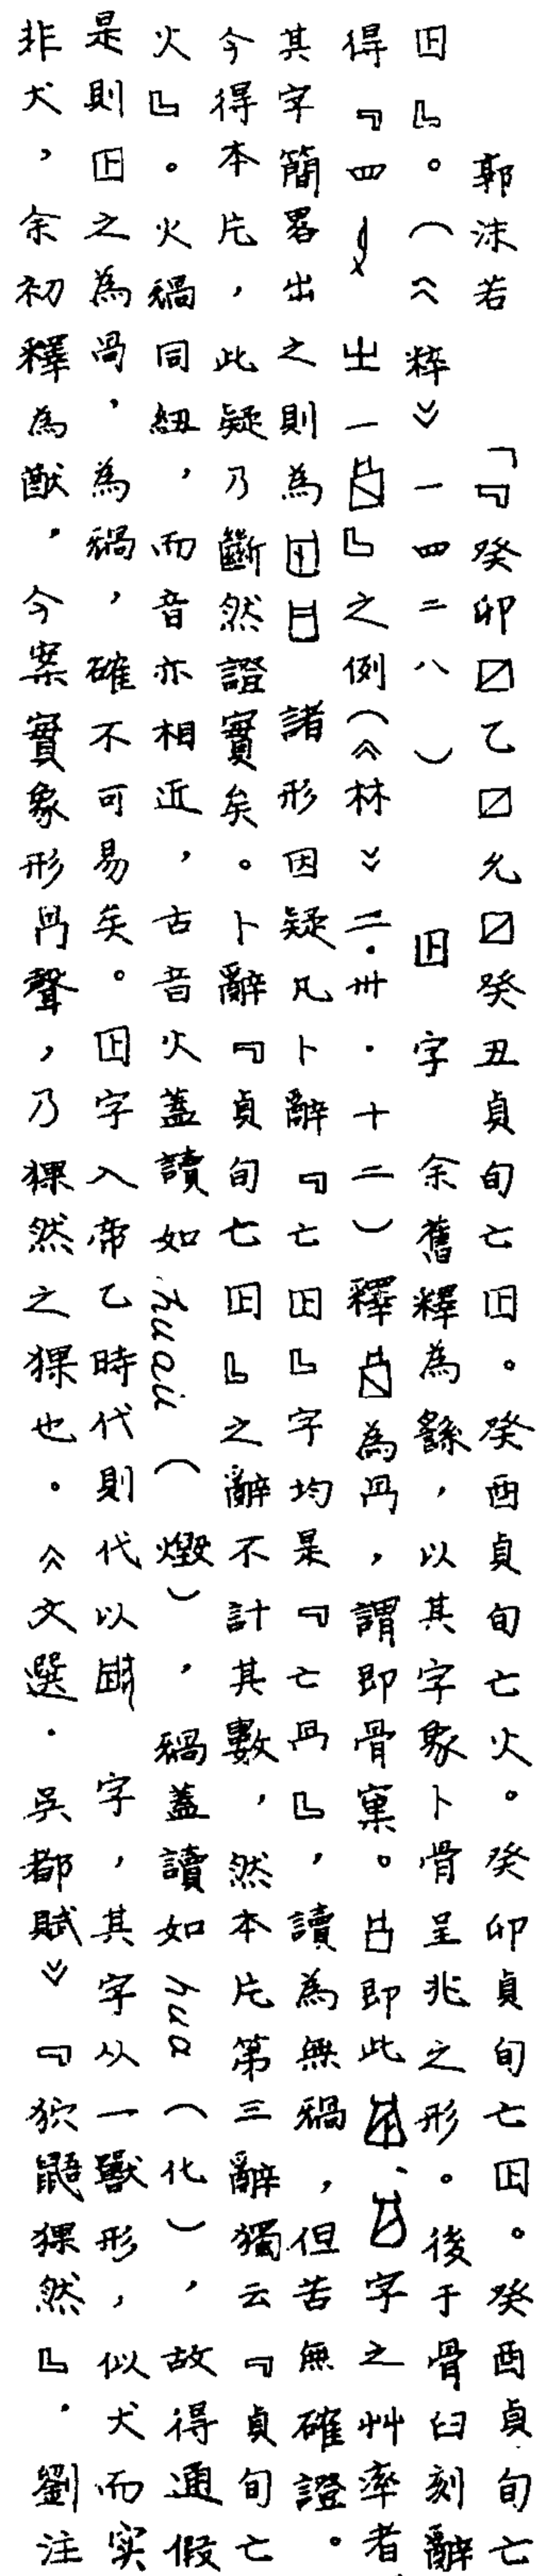 郭沫若　「『癸卯☐乙☐允☐癸丑貞旬亡𡆥。癸酉貞旬亡火。癸卯貞旬亡𡆥。癸酉貞旬亡
𡆥』。（《粹》一四二八）　𡆥字余舊釋為繇，以其字象卜骨呈兆之形。後于骨臼刻辭
得『四　㞢一　』之例（《林》二·卅·十二）釋　為冎，謂即骨窠。　即此　、　字之艸率者
其字簡畧出之則為　諸形因疑凡卜辭『亡𡆥』字均是『亡冎』，讀為無禍，但苦無確證。
今得本片，此疑乃斷然證實矣。卜辭『貞旬亡𡆥』之辭不計其數，然本片第三辭獨云『貞旬亡
火』。火禍同紐，而音亦相近，古音火蓋讀如huai（燬），禍蓋讀如hua（化），故得通假
是則𡆥之為咼，為禍，確不可易矣。𡆥字入帝乙時代則代以　字，其字从一獸形，似犬而实
非犬，余初釋為猷。今案實象形冎聲，乃猓然之猓也。《文選·吳都賦》『狖鼯猓然』。劉注